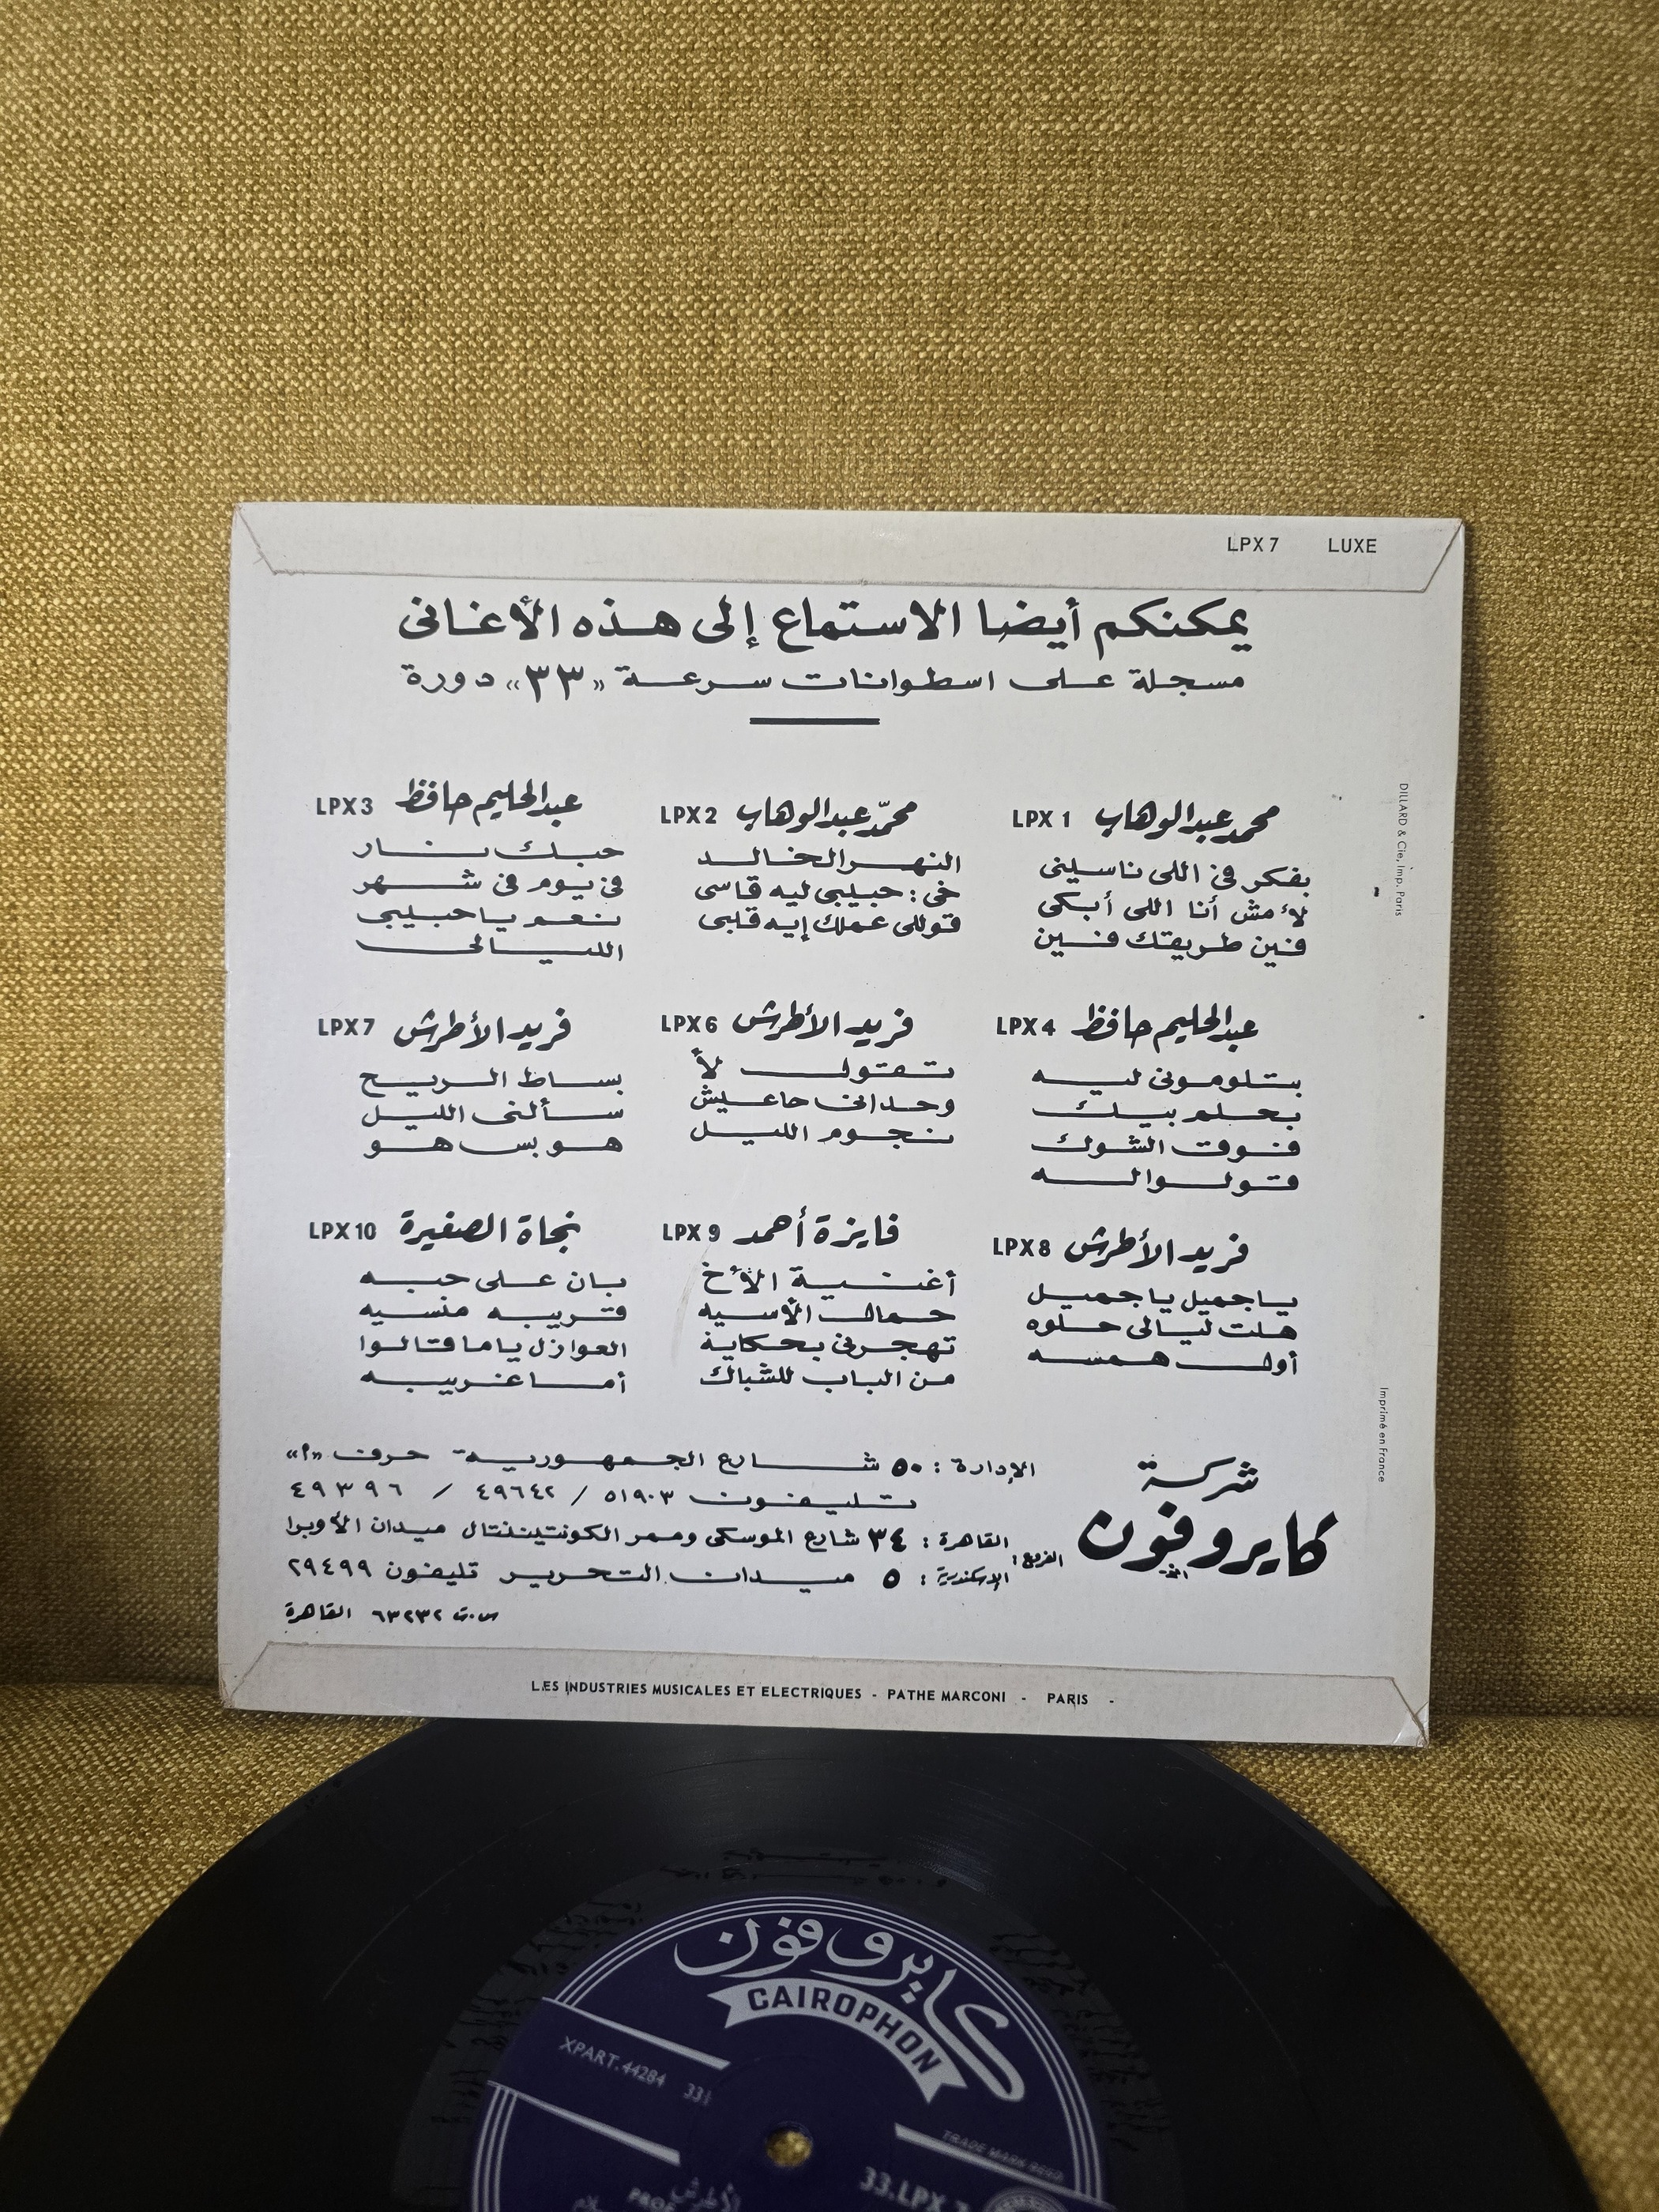 LPX 7 LUXE
يمكنكم أيضا الاستماع إلى هذه الأغانى
مسجلة على اسطوانات سرعة «٣٣» دورة
محمد عبد الوهاب LPX 1
بفكر فى اللى ناسينى
لأ مش أنا اللى أبكى
فين طريقك فين
محمّد عبد الوهاب LPX 2
النهر الخالد
خى : حبيبى ليه قاسى
قوللى عملك إيه قلبى
عبد الحليم حافظ LPX 3
حبك نار
فى يوم فى شهر
نعم يا حبيبى
الليالى
عبد الحليم حافظ LPX 4
بتلومونى ليه
بحلم بيك
فوق الشوك
قولوا له
فريد الأطرش LPX 6
تقول لأ
وحدانى حاعيش
نجوم الليل
فريد الأطرش LPX 7
بساط الريح
سألنى الليل
هو بس هو
فريد الأطرش LPX 8
يا جميل يا جميل
هلت ليالى حلوه
أول همسه
فايزة أحمد LPX 9
أغنية الأخ
حمال الأسيه
تهجرنى بحكاية
من الباب للشباك
نجاة الصغيرة LPX 10
بان على حبه
قريبه منسيه
العوازل ياما قالوا
أما غريبه
شركة
كايروفون
الإدارة : ٥٠ شارع الجمهورية حرف «أ»
تليفون ٥١٩٠٣ / ٤٩٦٤٢ / ٤٩٣٩٦
الفروع :
القاهرة : ٣٤ شارع الموسكى وممر الكونتيننتال ميدان الأوبرا
الإسكندرية : ٥ ميدان التحرير تليفون ٢٩٤٩٩
س.ت ٦٣٢٣٢ القاهرة
DILLARD & Cie, Imp. Paris
Imprimé en France
LES INDUSTRIES MUSICALES ET ELECTRIQUES - PATHE MARCONI - PARIS -
كايروفون
CAIROPHON
XPART.44284 33⅓
TRADE MARK REGD
33.LPX.7
الأطرش